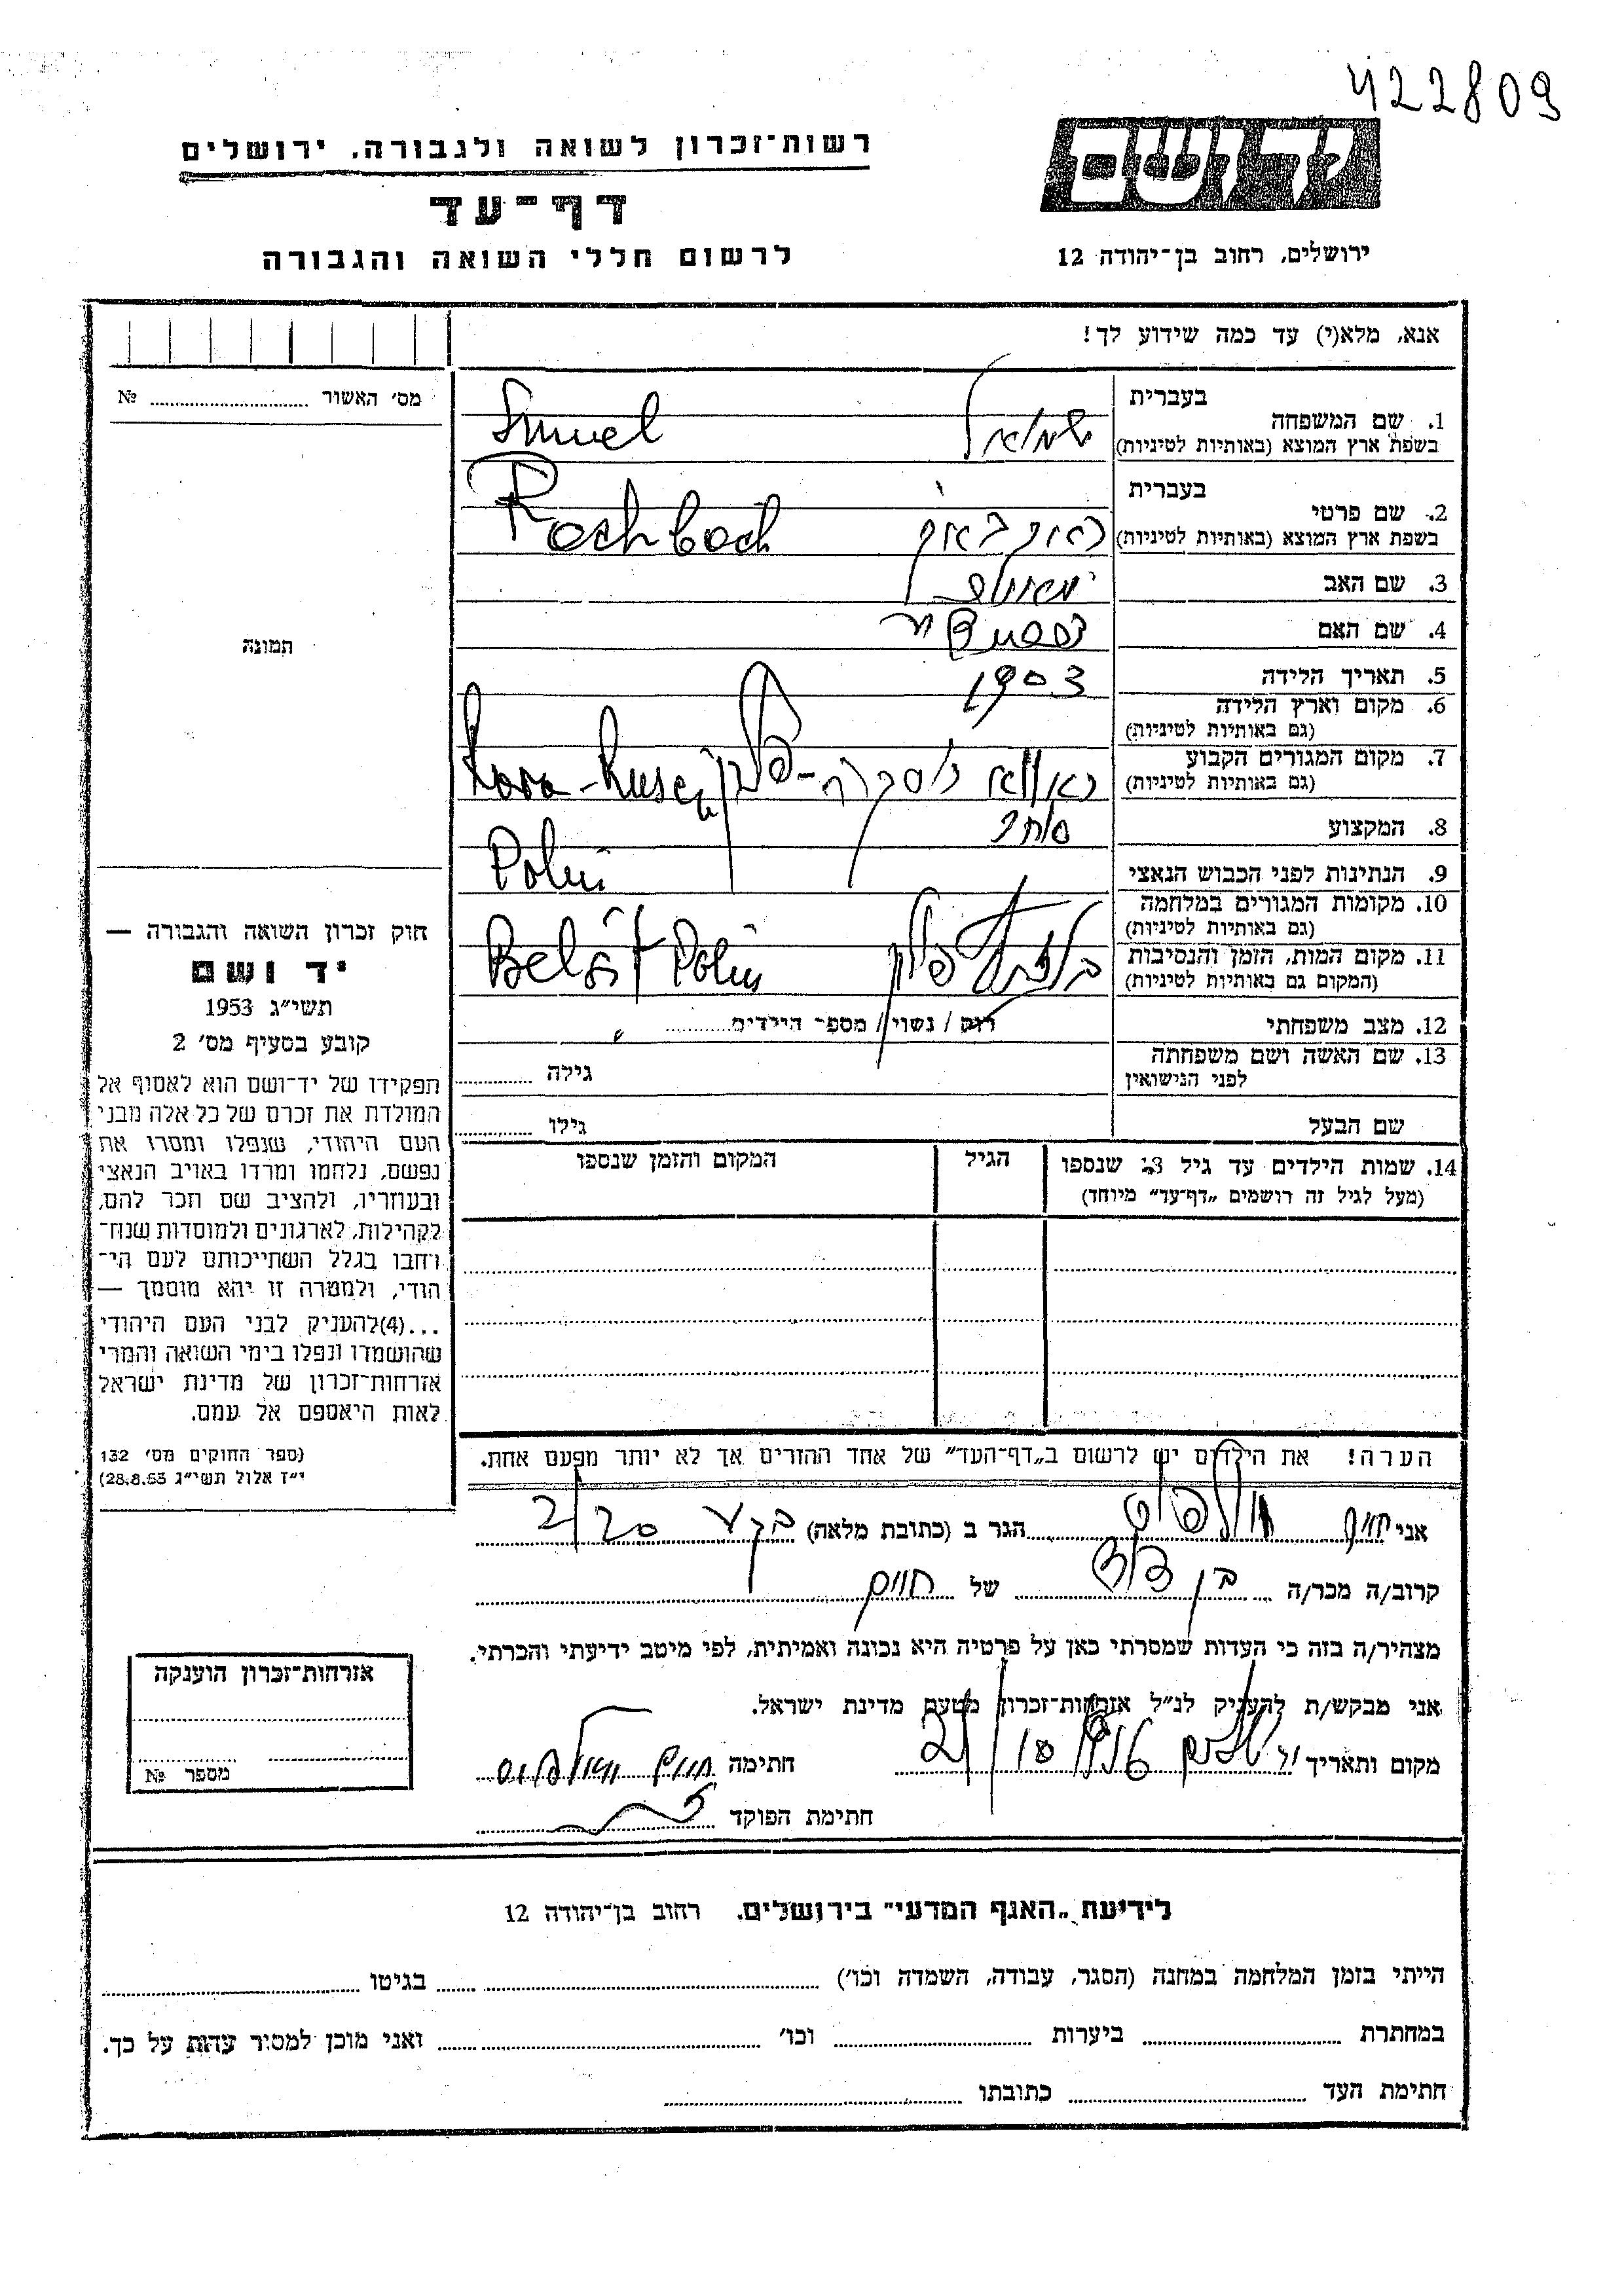 422809
רשות־זכרון לשואה ולגבורה, ירושלים
דף־עד
לרשום חללי השואה והגבורה
יד ושם
ירושלים, רחוב בן־יהודה 12
אנא, מלא(י) עד כמה שידוע לך!
מס׳ האשור № 
בעברית
1. שם המשפחה שמואל Smuel
בשפת ארץ המוצא (באותיות לטיניות)
בעברית
2. שם פרטי
בשפת ארץ המוצא (באותיות לטיניות)
3. שם האב
4. שם האם
5. תאריך הלידה 1903
6. מקום וארץ הלידה
(גם באותיות לטיניות)
7. מקום המגורים הקבוע
(גם באותיות לטיניות)
8. המקצוע סוחר
9. הנתינות לפני הכבוש הנאצי
10. מקומות המגורים במלחמה
(גם באותיות לטיניות)
11. מקום המות, הזמן והנסיבות
(המקום גם באותיות לטיניות)
12. מצב משפחתי רוק / נשוי / מספר הילדים
13. שם האשה ושם משפחתה גילה
לפני הנישואין
שם הבעל גילו
14. שמות הילדים עד גיל 18 שנספו הגיל המקום והזמן שנספו
(מעל לגיל זה רושמים „דף־עד״ מיוחד)
תמונה
חוק זכרון השואה והגבורה —
יד ושם
תשי״ג 1953
קובע בסעיף מס׳ 2
תפקידו של יד־ושם הוא לאסוף אל
המולדת את זכרם של כל אלה מבני
העם היהודי, שנפלו ומסרו את
נפשם, נלחמו ומרדו באויב הנאצי
ובעוזריו, ולהציב שם וזכר להם,
לקהילות, לארגונים ולמוסדות שנח־
רחבו בגלל השתייכותם לעם הי־
הודי, ולמטרה זו יהא מוסמך —
...(4)להעניק לבני העם היהודי
שהושמדו ונפלו בימי השואה והמרי
אזרחות־זכרון של מדינת ישראל
לאות היאספם אל עמם.
(ספר החוקים מס׳ 132
י״ז אלול תשי״ג 28.8.53)
הערה! את הילדים יש לרשום ב„דף־העד״ של אחד ההורים אך לא יותר מפעם אחת.
אני חיים הגר ב (כתובת מלאה)
קרוב/ה מכר/ה בן דוד של
מצהיר/ה בזה כי העדות שמסרתי כאן על פרטיה היא נכונה ואמיתית, לפי מיטב ידיעתי והכרתי.
אני מבקש/ת להעניק לנ״ל אזרחות־זכרון מטעם מדינת ישראל.
מקום ותאריך חתימה
חתימת הפוקד
אזרחות־זכרון הוענקה
מספר №
לידיעת „האגף המדעי״ בירושלים, רחוב בן־יהודה 12
הייתי בזמן המלחמה במחנה (הסגר, עבודה, השמדה וכו׳) בגיטו
במחתרת ביערות וכו׳ ואני מוכן למסיר עדות על כך.
חתימת העד כתובתו